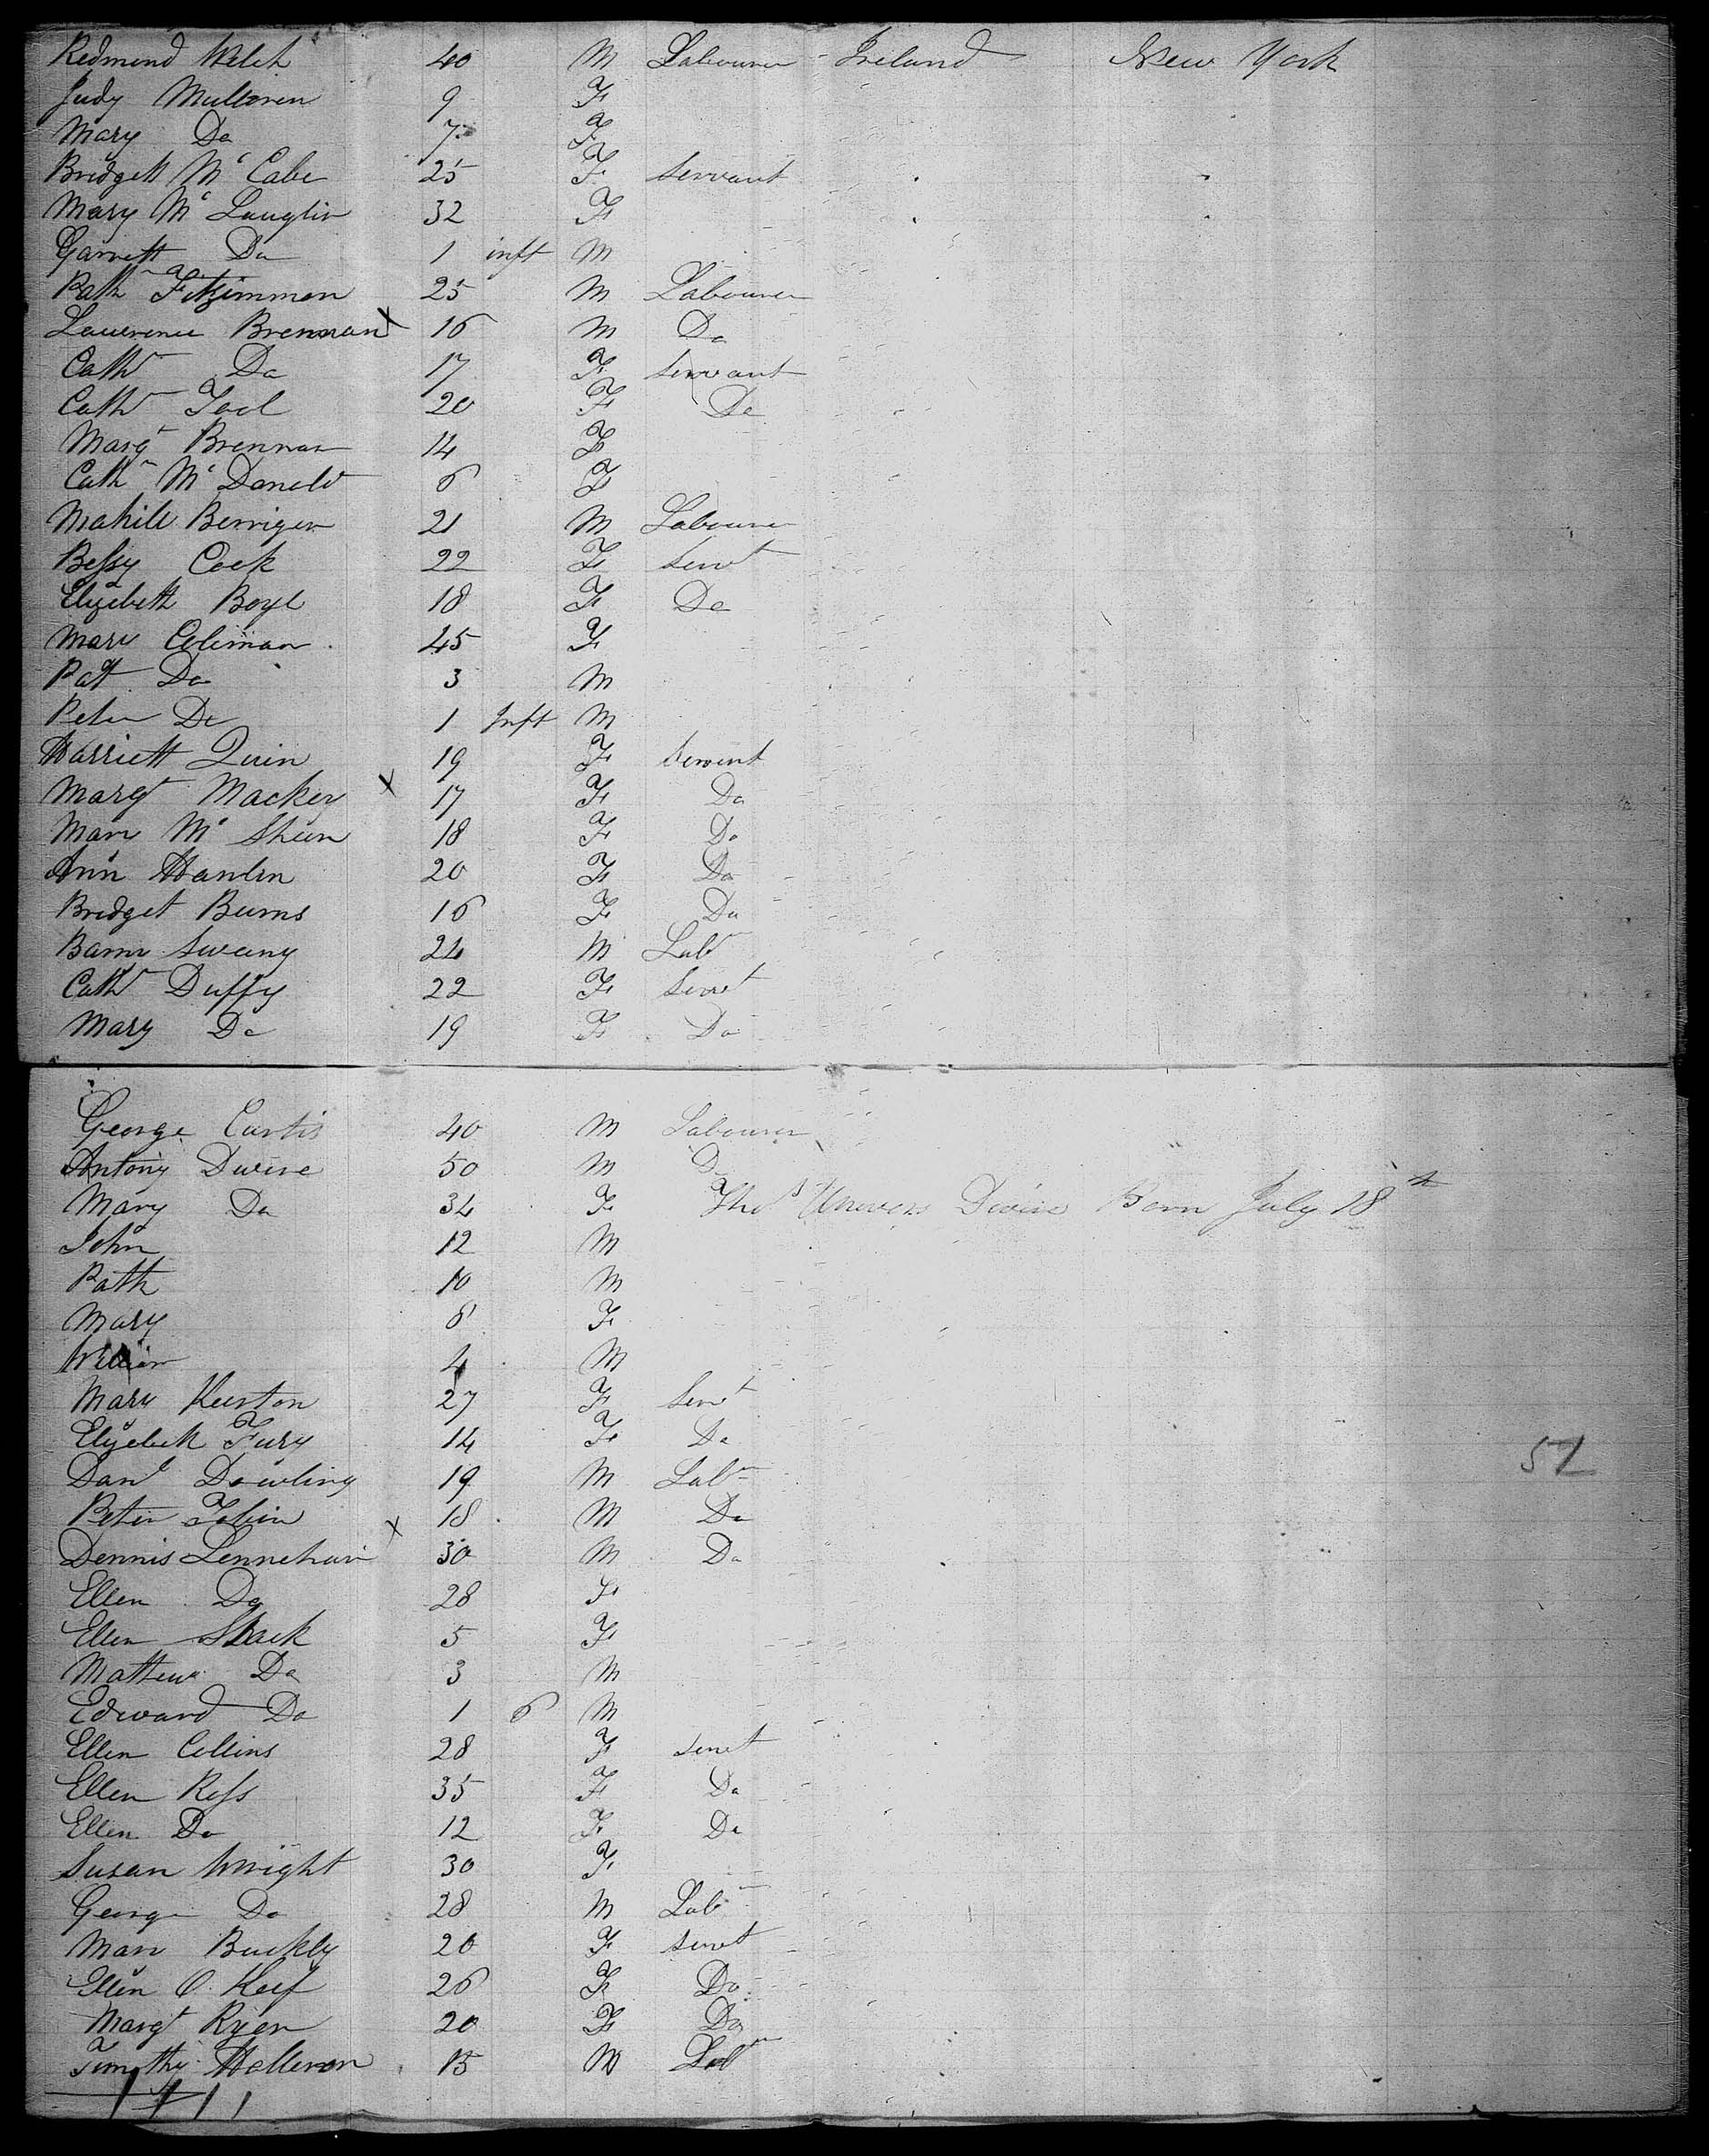 Redmond Welch 40 M Labourer Ireland New York
Judy Mulloren 9 F
Mary Do 7 F
Bridgett Mc Cabe 25 F Servant
Mary Mc Lauglin 32 F
Garrett Do 1 inft M
Patk Fitzimmon 25 M Labourer
Lawrence Brennan X 16 M Do
Cathr Do 17 F Servant
Cathr Tool 20 F Do
Margt Brennan 14 F
Cathn Mc Donald 6 F
Berrigan 21 M Labourer
Bessy Cook 22 F Servt
Elizabeth Boyl 18 F Do
Mary Coliman 45 F
Pat Do 3 M
Peter Do 1 Inft M
Harriett Quin 19 F Servent
Margt Mackey X 17 F Do
Mary Mc Sheen 18 F Do
Ann Hanlen 20 F Do
Bridget Burns 16 F Do
Barny Sweeny 24 M Labr
Cathr Duffy 22 F Servt
Mary Do 19 F Do
George Curtis 40 M Labourer
Antony Divine 50 M Do
Mary Do 34 F Thos Divine Born July 18th
John 12 M
Patk 10 M
Mary 6 F
William 4 M
Mary Keeston 27 F Servt
Elizebeth Fury 14 F Do
Danl Dowling 19 M Labr
51
Peter Tobin 18 M Do
Dennis Lennehan X 30 M Do
Ellen Do 28 F
Ellen Slack 5 F
Mathew Do 3 M
Edward Do 1 6 M
Ellen Collins 28 F Servt
Ellen Ross 35 F Do
Ellen Do 12 F Do
Susan Wright 30 F
George Do 28 M Labr
Mary Buckly 20 F Servt
Ellen O Keef 26 F Do
Margt Ryen 20 F Do
Timothy Holleran 15 M Labr